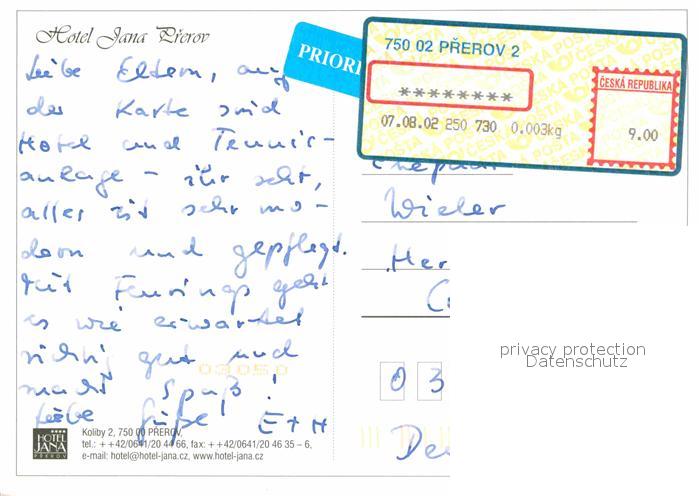 Hotel Jana Přerov
Liebe Eltern, auf
der Karte sind
Hotel und Tennis-
anlage - ihr seht,
alles ist sehr mo-
dern und gepflegt.
Mit
es wie erwartet
richtig gut und
macht Spaß!
Liebe Grüße E+H
HOTEL
JANA
PŘEROV
Koliby 2, 750 00 PŘEROV,
tel.: ++42/0641/20 44 66, fax: ++42/0641/20 46 35 – 6,
e-mail: hotel@hotel-jana.cz, www.hotel-jana.cz
PRIORI
750 02 PŘEROV 2
********
07.08.02 250 730 0.003kg
ČESKÁ REPUBLIKA
9.00
Ehepaar
Wieler
Her
03
De
privacy protection
Datenschutz
03050